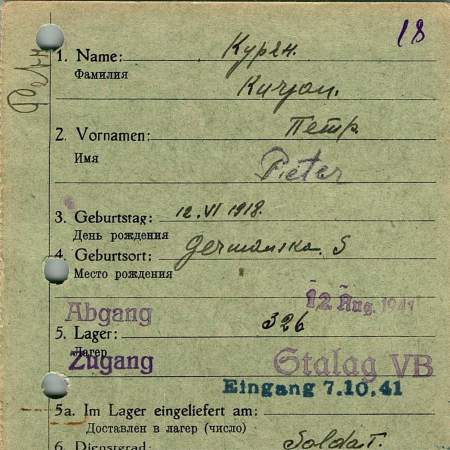 18
1. Name: Курян.
Фамилия
Kurjan.
2. Vornamen: Петр.
Имя
Pieter
3. Geburtstag: 12. VI 1918.
День рождения
4. Geburtsort: Germanska. S
Место рождения
Abgang 12 Aug. 1941
5. Lager: 326
Лагер
Zugang Stalag VB
Eingang 7.10.41
5a. Im Lager eingeliefert am:
Доставлен в лагер (число)
6. Dienstgrad: Soldat.